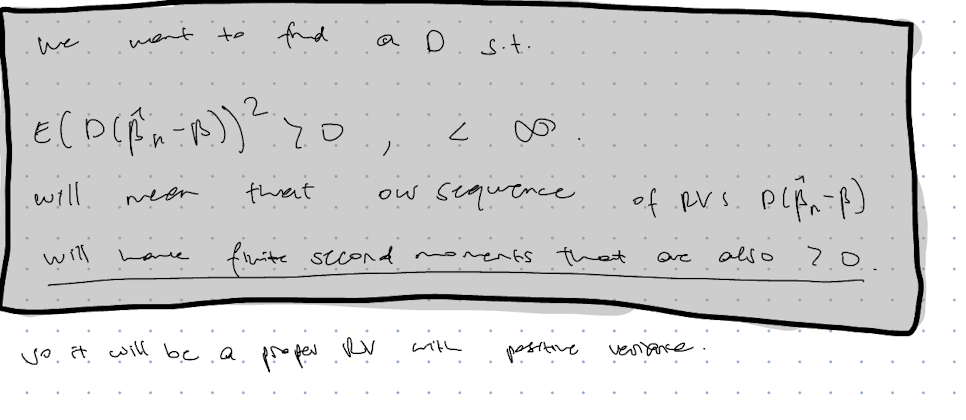 We want to find a D s.t.
E(D(β̂n-β))² > 0 , < ∞ .
will mean that our sequence of RVs D(β̂n-β)
will have finite second moments that are also > 0.
so it will be a proper RV with positive variance.